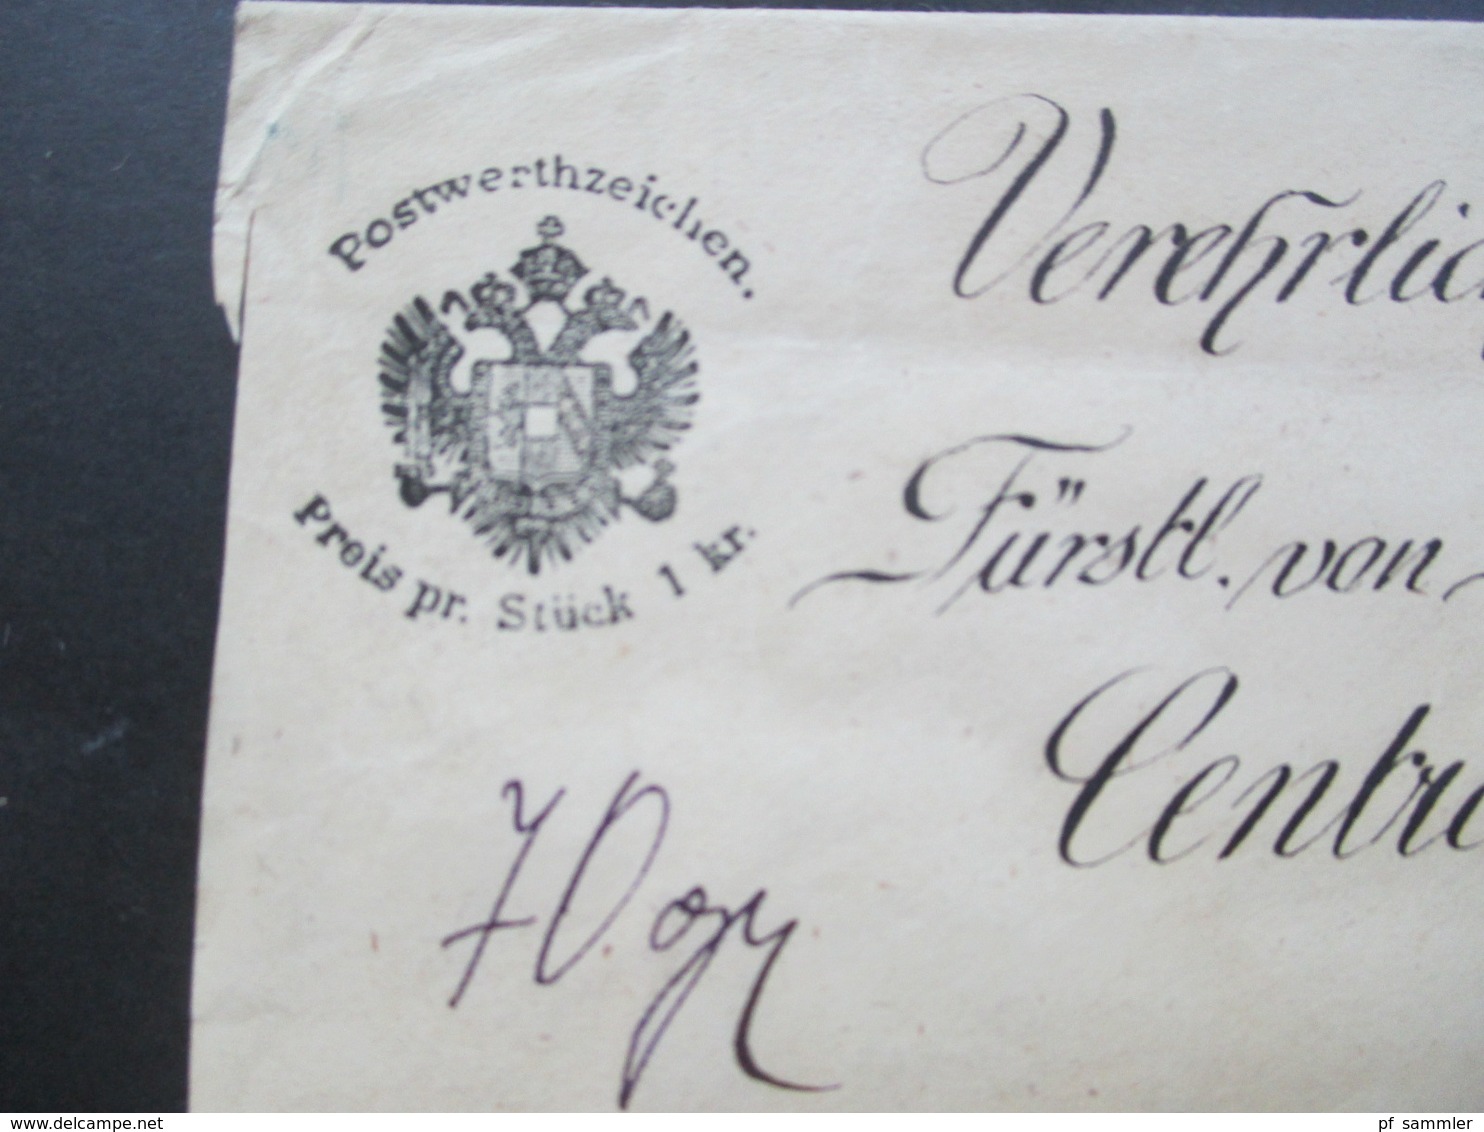 Postwerthzeichen.
Preis pr. Stück 1 kr.
Verehrlic
Fürstl. von
Centra
70 gr
www.delcampe.net
pf_sammler